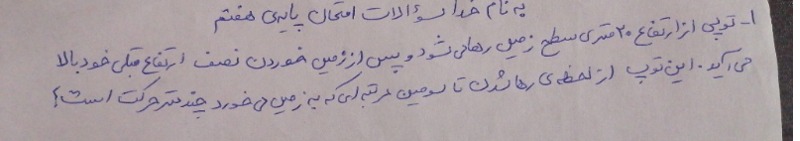 به نام خدا سؤالات امتحان پایه‌ی هفتم
۱- توپی از ارتفاع ۲۰ متری سطح زمین رها می شود و پس از زمین خوردن نصف ارتفاع قبلی خود بالا
می آید. این توپ از لحظه‌ی رها شدن تا سومین مرتبه ای که به زمین می خورد چند متر حرکت است؟